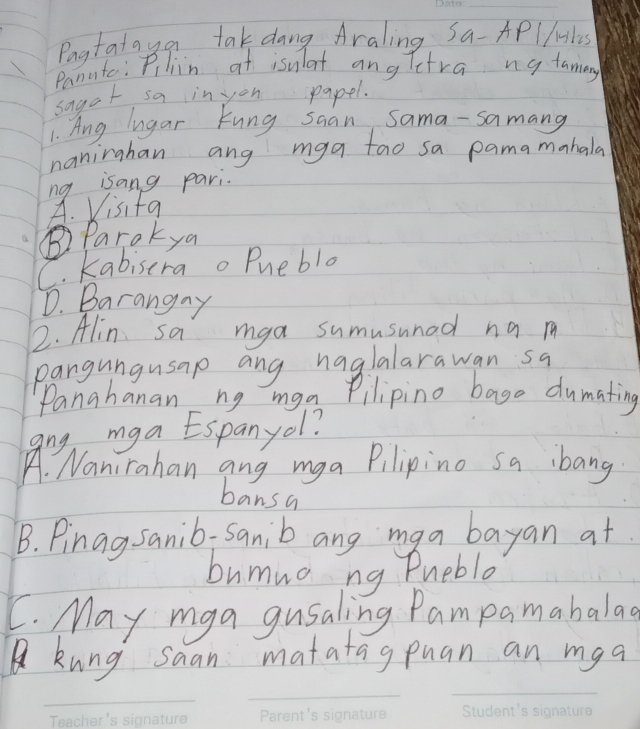 Date:
Pagtataya takdang Araling sa-AP1/14/25
Panuto: Piliin at isulat ang letra ng tamang
sagot sa inyon papel.
1. Ang lugar kung saan sama-samang
nanirahan ang mga tao sa pamamahala
ng isang pari.
A. Visita
B. Parokya
C. Kabisera o Pueblo
D. Barangay
2. Alin sa mga sumusunod na
pangungusap ang naglalarawan sa
Panahanan ng mga Pilipino bago dumating
ang mga Espanyol?
A. Nanirahan ang mga Pilipino sa ibang
bansa
B. Pinagsanib-sanib ang mga bayan at
bumuo ng Pueblo
C. May mga gusaling Pampamahalaa
kung saan matatagpuan an mga
Teacher's signature Parent's signature Student's signature